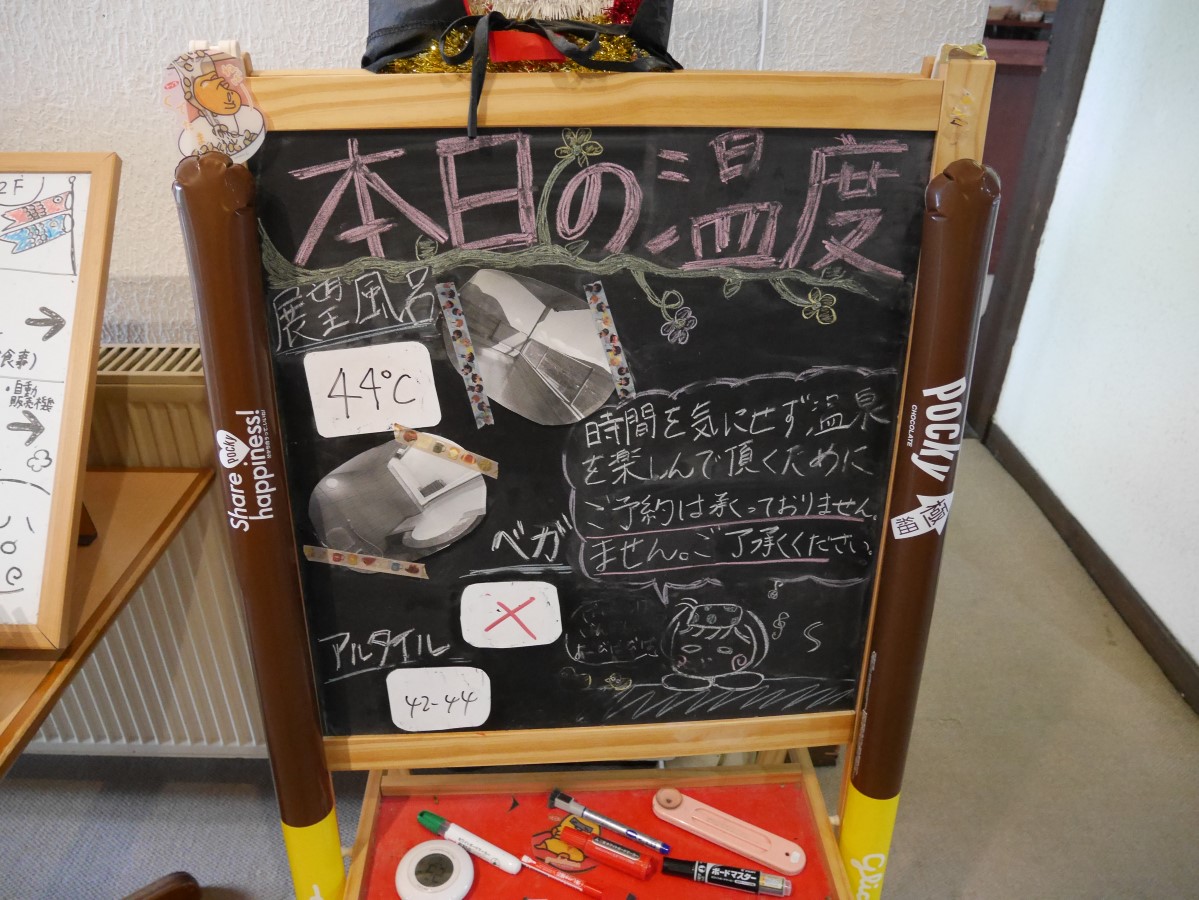 本日の温度
展望風呂
44℃
時間を気にせず温泉
を楽しんで頂くために
ご予約は承っておりません。
ません。ご了承ください。
ベガ
×
アルタイル
42-44
2F
食事)
・自動
販売機
Share Pocky
happiness!
Pocky
CHOCOLATE
極
ボードマスター